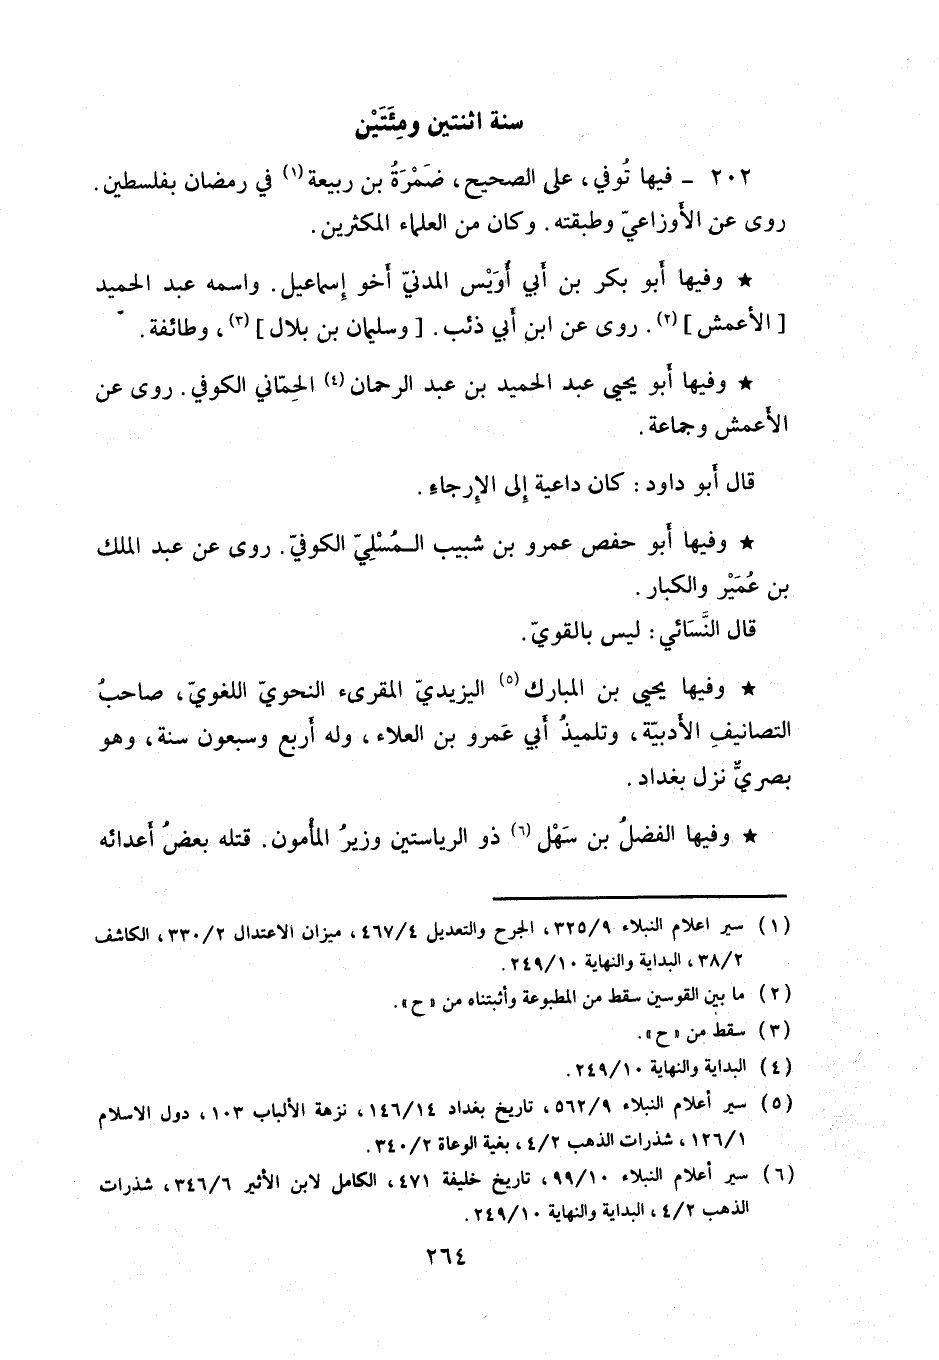 سنة اثنتين ومِئَتَيْن
٢٠٢ - فيها تُوفي، على الصحيح، ضَمْرَةُ بن ربيعة (١) في رمضان بفلسطين.
روى عن الأَوزاعيّ وطبقته. وكان من العلماء المكثرين.
★ وفيها أَبو بكر بن أَبي أُوَيْس المدنيّ أَخو إِسماعيل. واسمه عبد الحميد
[ الأعمش ] (٢). روى عن ابن أَبي ذئب. [ وسليمان بن بلال ] (٣)، وطائفة.
★ وفيها أَبو يحيى عبد الحميد بن عبد الرحمان (٤) الحِمّاني الكوفي. روى عن
الأَعمش وجماعة.
قال أَبو داود: كان داعية إِلى الإِرجاء.
★ وفيها أَبو حفص عمرو بن شبيب الـمُسْلِيّ الكوفيّ. روى عن عبد الملك
بن عُمَيْر والكبار.
قال النَّسَائي: ليس بالقويّ.
★ وفيها يحيى بن المبارك (٥) اليزيديّ المقرىء النحويّ اللغويّ، صاحبُ
التصانيفِ الأَدبيّة، وتلميذُ أَبي عَمرو بن العلاء، وله أَربع وسبعون سنة، وهو
بصريٌّ نزل بغداد.
★ وفيها الفضلُ بن سَهْل (٦) ذو الرياستين وزيرُ المأْمون. قتله بعضُ أَعدائه
(١) سير اعلام النبلاء ٣٢٥/٩، الجرح والتعديل ٤٦٧/٤، ميزان الاعتدال ٣٣٠/٢، الكاشف
٣٨/٢، البداية والنهاية ٢٤٩/١٠.
(٢) ما بين القوسين سقط من المطبوعة وأثبتناه من «ح».
(٣) سقط من «ح».
(٤) البداية والنهاية ٢٤٩/١٠.
(٥) سير أعلام النبلاء ٥٦٢/٩، تاريخ بغداد ١٤٦/١٤، نزهة الألباب ١٠٣، دول الاسلام
١٢٦/١، شذرات الذهب ٤/٢، بغية الوعاة ٣٤٠/٢.
(٦) سير أعلام النبلاء ٩٩/١٠، تاريخ خليفة ٤٧١، الكامل لابن الأثير ٣٤٦/٦، شذرات
الذهب ٤/٢، البداية والنهاية ٢٤٩/١٠.
٢٦٤